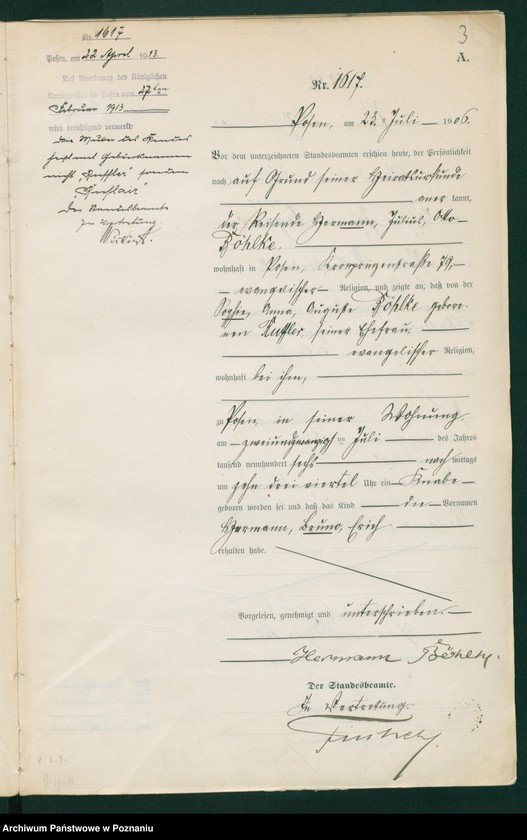 3
A.
Nr. 1617
Posen, am 22 April 1913
Auf Anordnung des Königlichen
Amtsgerichts in Posen vom 27ten
Februar 1913
wird berichtigend vermerkt
daß die Mutter des Kindes
mit Geburtsnamen
nicht
Der Standesbeamte
In Vertretung
Nr. 1617.
Posen, am 23. Juli 1906.
Vor dem unterzeichneten Standesbeamten erschien heute, der Persönlichkeit
nach auf Grund seiner Heiratsurkunde
aner kannt,
der Reisende Hermann, Julius, Otto
Böhlke,
wohnhaft in Posen, Kronprinzenstraße 79,
evangelischer Religion, und zeigte an, daß von der
Sophie, Anna, Auguste Böhlke gebore
nen seiner Ehefrau,
evangelischer Religion,
wohnhaft bei ihm,
zu Posen in seiner Wohnung
am zweiundzwanzigsten Juli des Jahres
tausend neunhundert sechs nach mittags
um zehn drei viertel Uhr ein Knabe
geboren worden sei und daß das Kind die Vornamen
Hermann, Bruno, Erich
erhalten habe.
Vorgelesen, genehmigt und unterschrieben
Hermann Böhlke.
Der Standesbeamte.
In Vertretung.
Archiwum Państwowe w Poznaniu